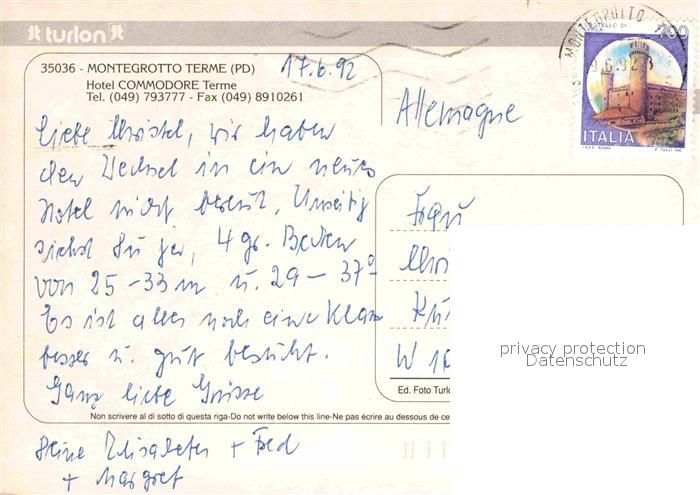 turlon
35036 - MONTEGROTTO TERME (PD)
Hotel COMMODORE Terme
Tel. (049) 793777 - Fax (049) 8910261
17.6.92
MONTEGROTTO
CASTELLO DI
IVREA
700
ITALIA
I.P.Z.S. ROMA
Allemagne
Liebe Christel, wir haben
den Wechsel in ein neues
Hotel nicht bereut,
siehst Du ja, 4 gr. Becken
von 25-33 m u. 29-37°
Es ist alles noch eine Klasse
besser u. gut besucht.
Ganz liebe Grüsse
Deine Elisabeth + Fred
+ Margret
Frau
W
privacy protection
Datenschutz
Ed. Foto Turlo
Non scrivere al di sotto di questa riga-Do not write below this line-Ne pas écrire au dessous de ce